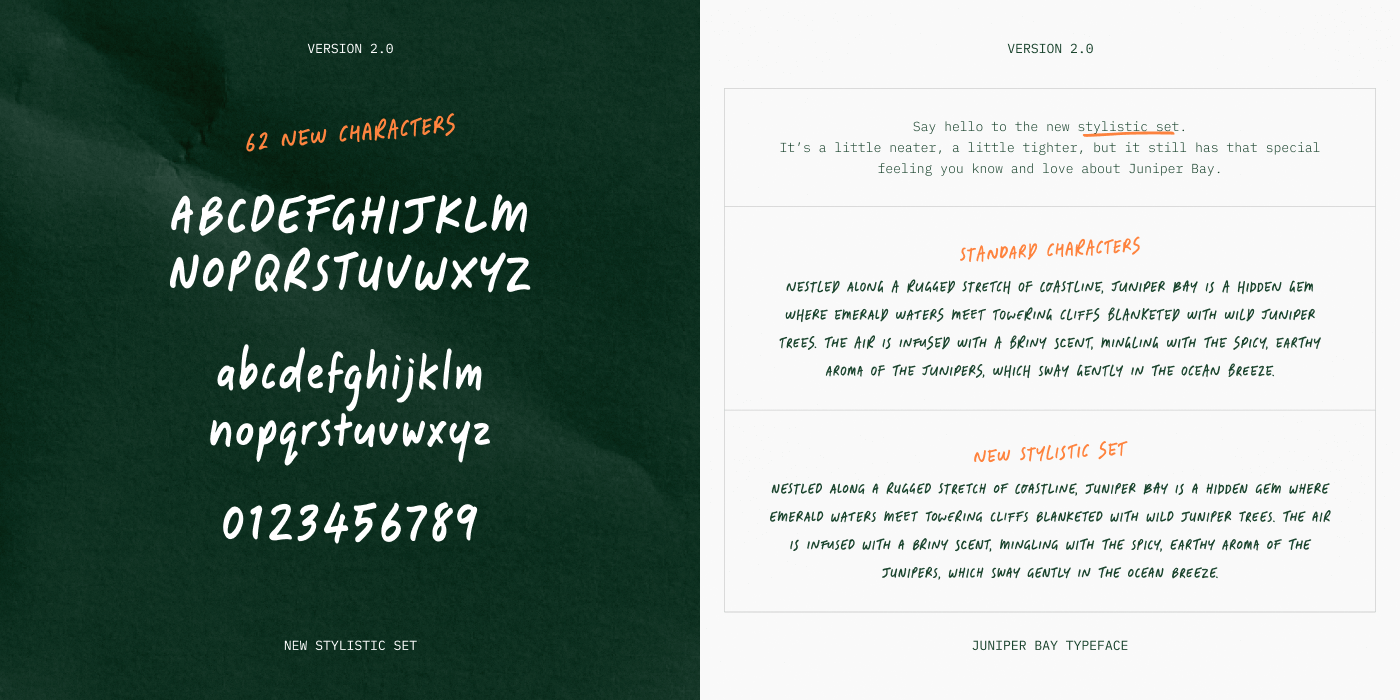 VERSION 2.0
62 NEW CHARACTERS
ABCDEFGHIJKLM
NOPQRSTUVWXYZ
abcdefghijklm
nopqrstuvwxyz
0123456789
NEW STYLISTIC SET
VERSION 2.0
Say hello to the new stylistic set.
It’s a little neater, a little tighter, but it still has that special
feeling you know and love about Juniper Bay.
STANDARD CHARACTERS
NESTLED ALONG A RUGGED STRETCH OF COASTLINE, JUNIPER BAY IS A HIDDEN GEM
WHERE EMERALD WATERS MEET TOWERING CLIFFS BLANKETED WITH WILD JUNIPER
TREES. THE AIR IS INFUSED WITH A BRINY SCENT, MINGLING WITH THE SPICY, EARTHY
AROMA OF THE JUNIPERS, WHICH SWAY GENTLY IN THE OCEAN BREEZE.
NEW STYLISTIC SET
NESTLED ALONG A RUGGED STRETCH OF COASTLINE, JUNIPER BAY IS A HIDDEN GEM WHERE
EMERALD WATERS MEET TOWERING CLIFFS BLANKETED WITH WILD JUNIPER TREES. THE AIR
IS INFUSED WITH A BRINY SCENT, MINGLING WITH THE SPICY, EARTHY AROMA OF THE
JUNIPERS, WHICH SWAY GENTLY IN THE OCEAN BREEZE.
JUNIPER BAY TYPEFACE